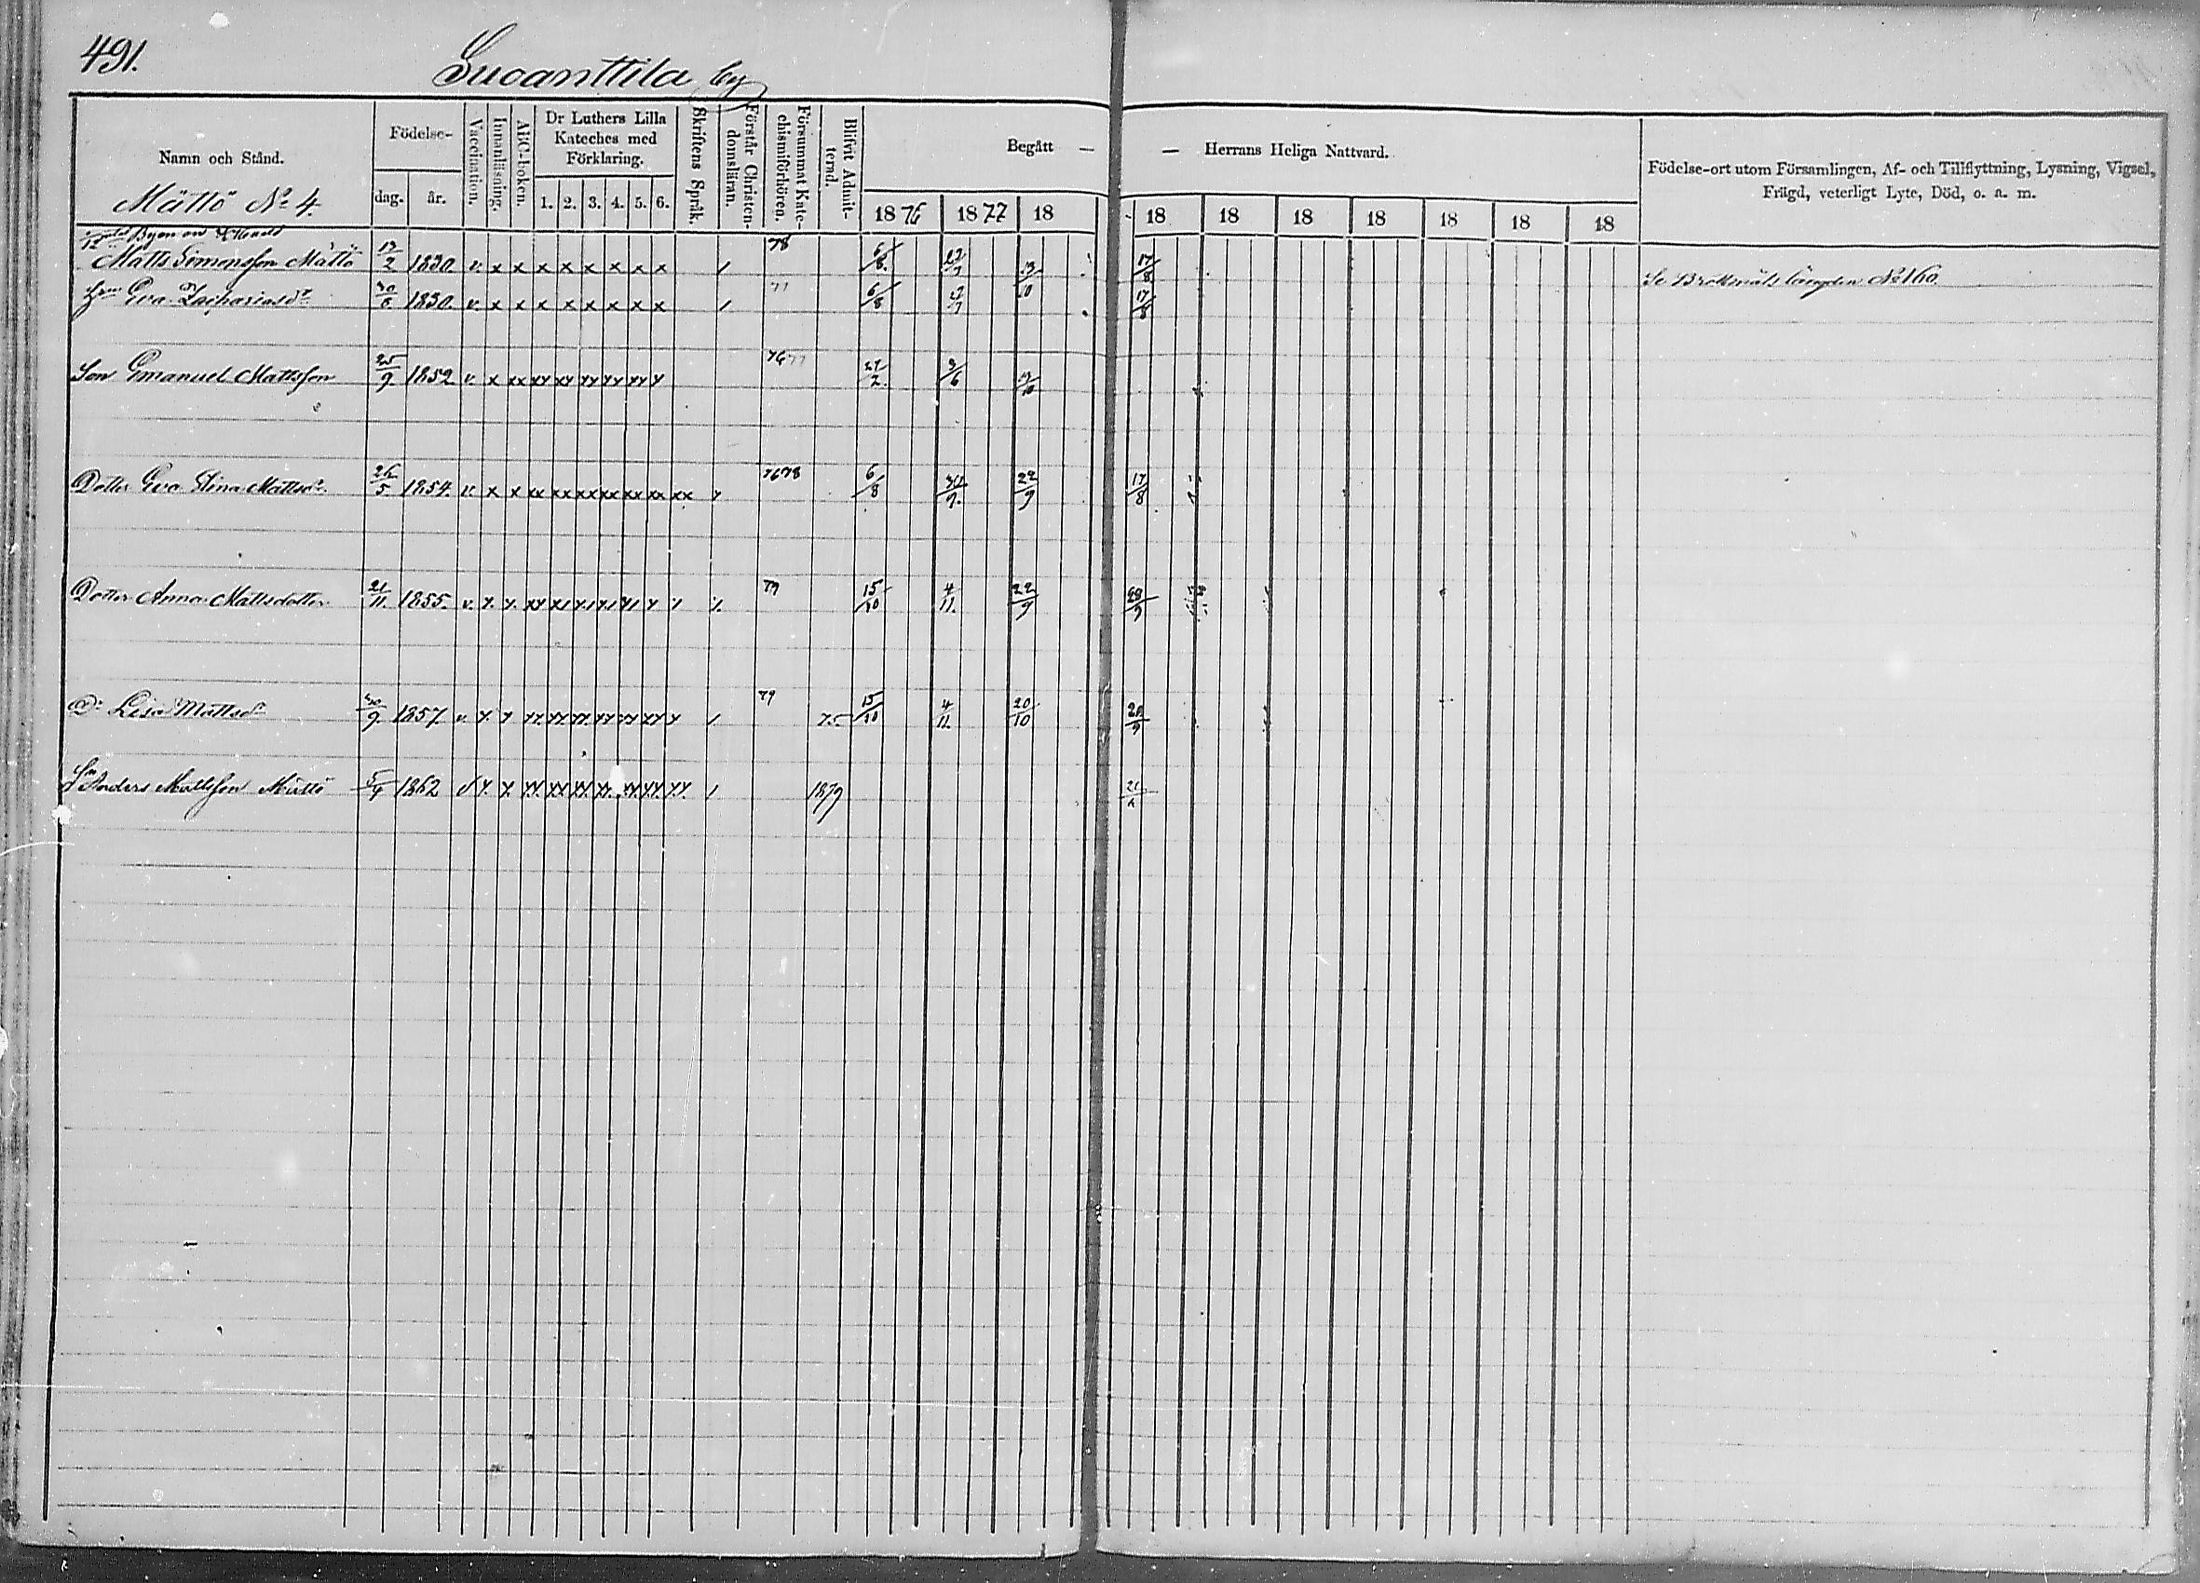 491.
Suoanttila by
Namn och Stånd.
Mättö No 4.
Födelse-
dag.
år.
Vaccination.
Innanläsning.
ABC-boken.
Dr Luthers Lilla
Kateches med
Förklaring.
1. 2. 3. 4. 5. 6.
Skriftens Språk.
Förstår Christen-
domsläran.
Försummat Kate-
chismiförhören.
Blifvit Admit-
terad.
Begått — — Herrans Heliga Nattvard.
1876 1877 18 18 18 18 18 18 18 18
Födelse-ort utom Församlingen, Af- och Tillflyttning, Lysning, Vigsel,
Frägd, veterligt Lyte, Död, o. a. m.
Matts Simonsson Mättö 1830. v. x x x x x x x x / 78 6/8 17/8
Eva Zachariasdr 1830. v. x x x x x x x x / 77 6/8 17/8
Se Brottmåls längden No 160.
Son Emanuel Mattsson 25/9 1852 v. x xx xx xx xx xx xx x 76 77 3/6
Dotter Eva Stina Mattsdr 26/5 1854. v. x x xx xx xx xx xx xx xx 7678 6/8 22/9 17/8
Dotter Anna Mattsdotter 21/11. 1855. v. x. x. xx xx xx xx xx x 79 15/10 4/11. 22/9 28/9
Dr Lisa Mattsdr 30/9 1857. v. x. x xx xx xx xx xx xx x / 79 75 15/10 4/11. 20/10
Sn Anders Mattsson Mättö 1862 v x. x. xx xx xx xx. xx xx. xx. / 1879